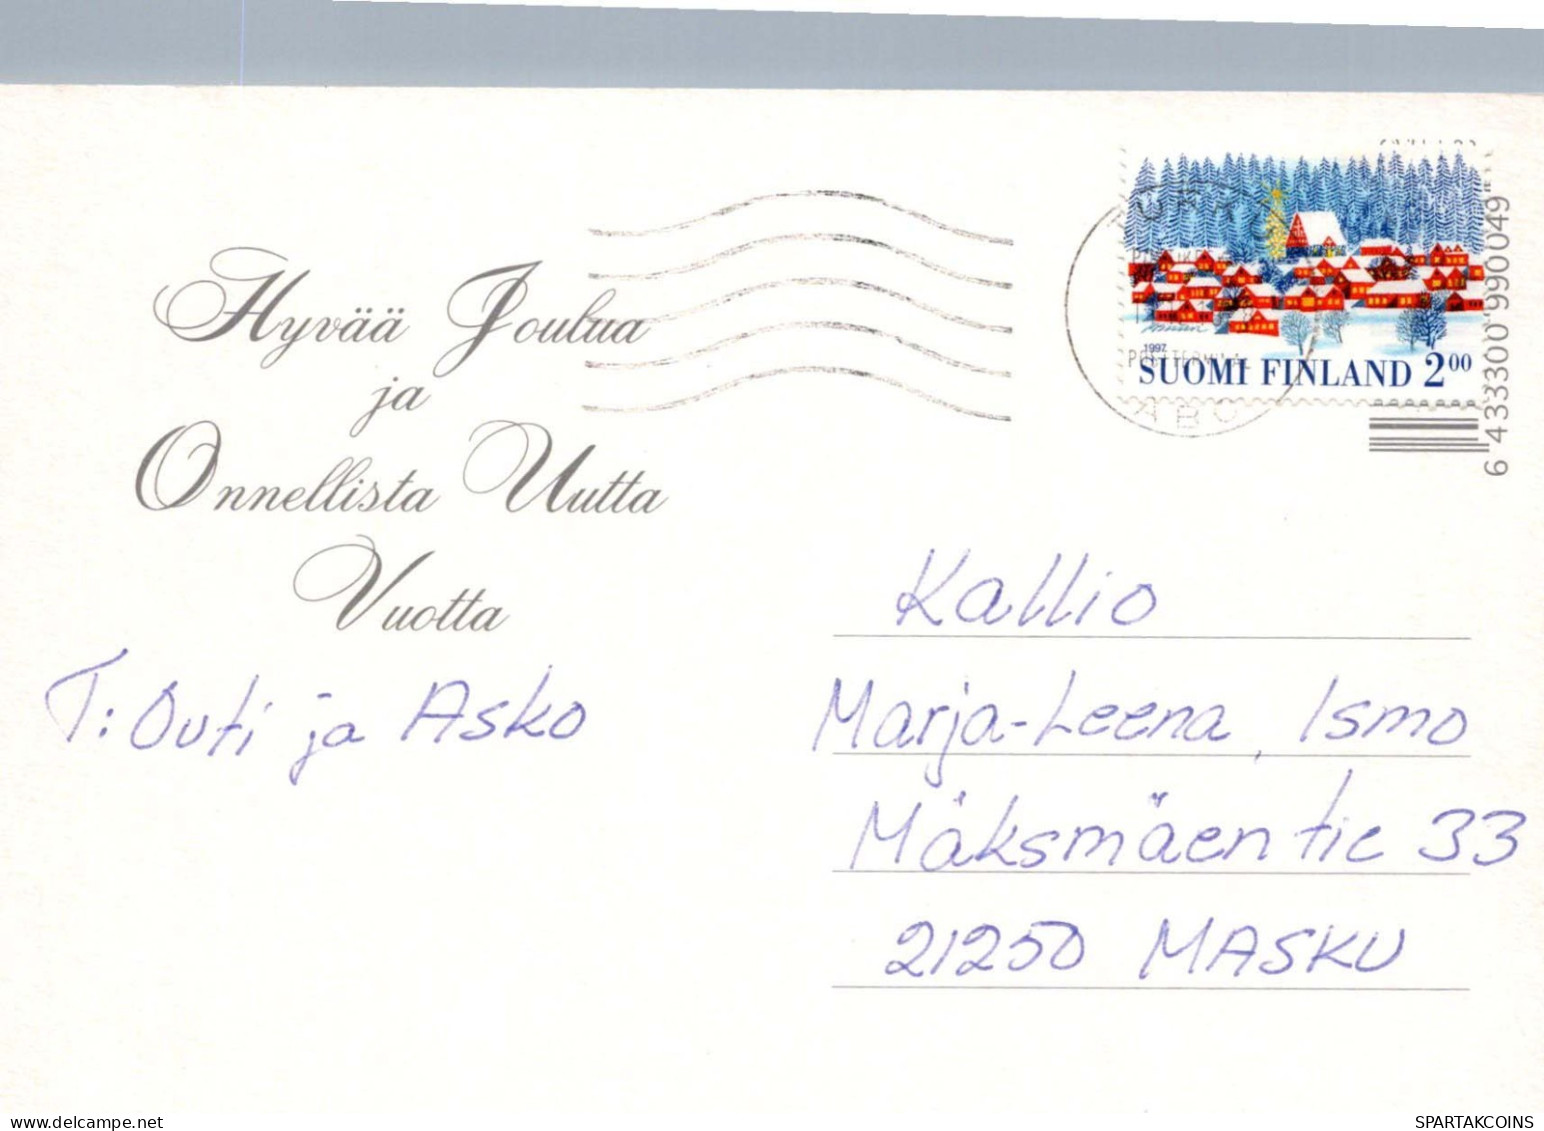 Hyvää Joulua
ja
Onnellista Uutta
Vuotta
T: Outi ja Asko
1997
SUOMI FINLAND 2.00
ABO
6 433300 990049
Kallio
Marja-Leena, Ismo
Mäksmäentie 33
21250 MASKU
www.delcampe.net
SPARTAKCOINS